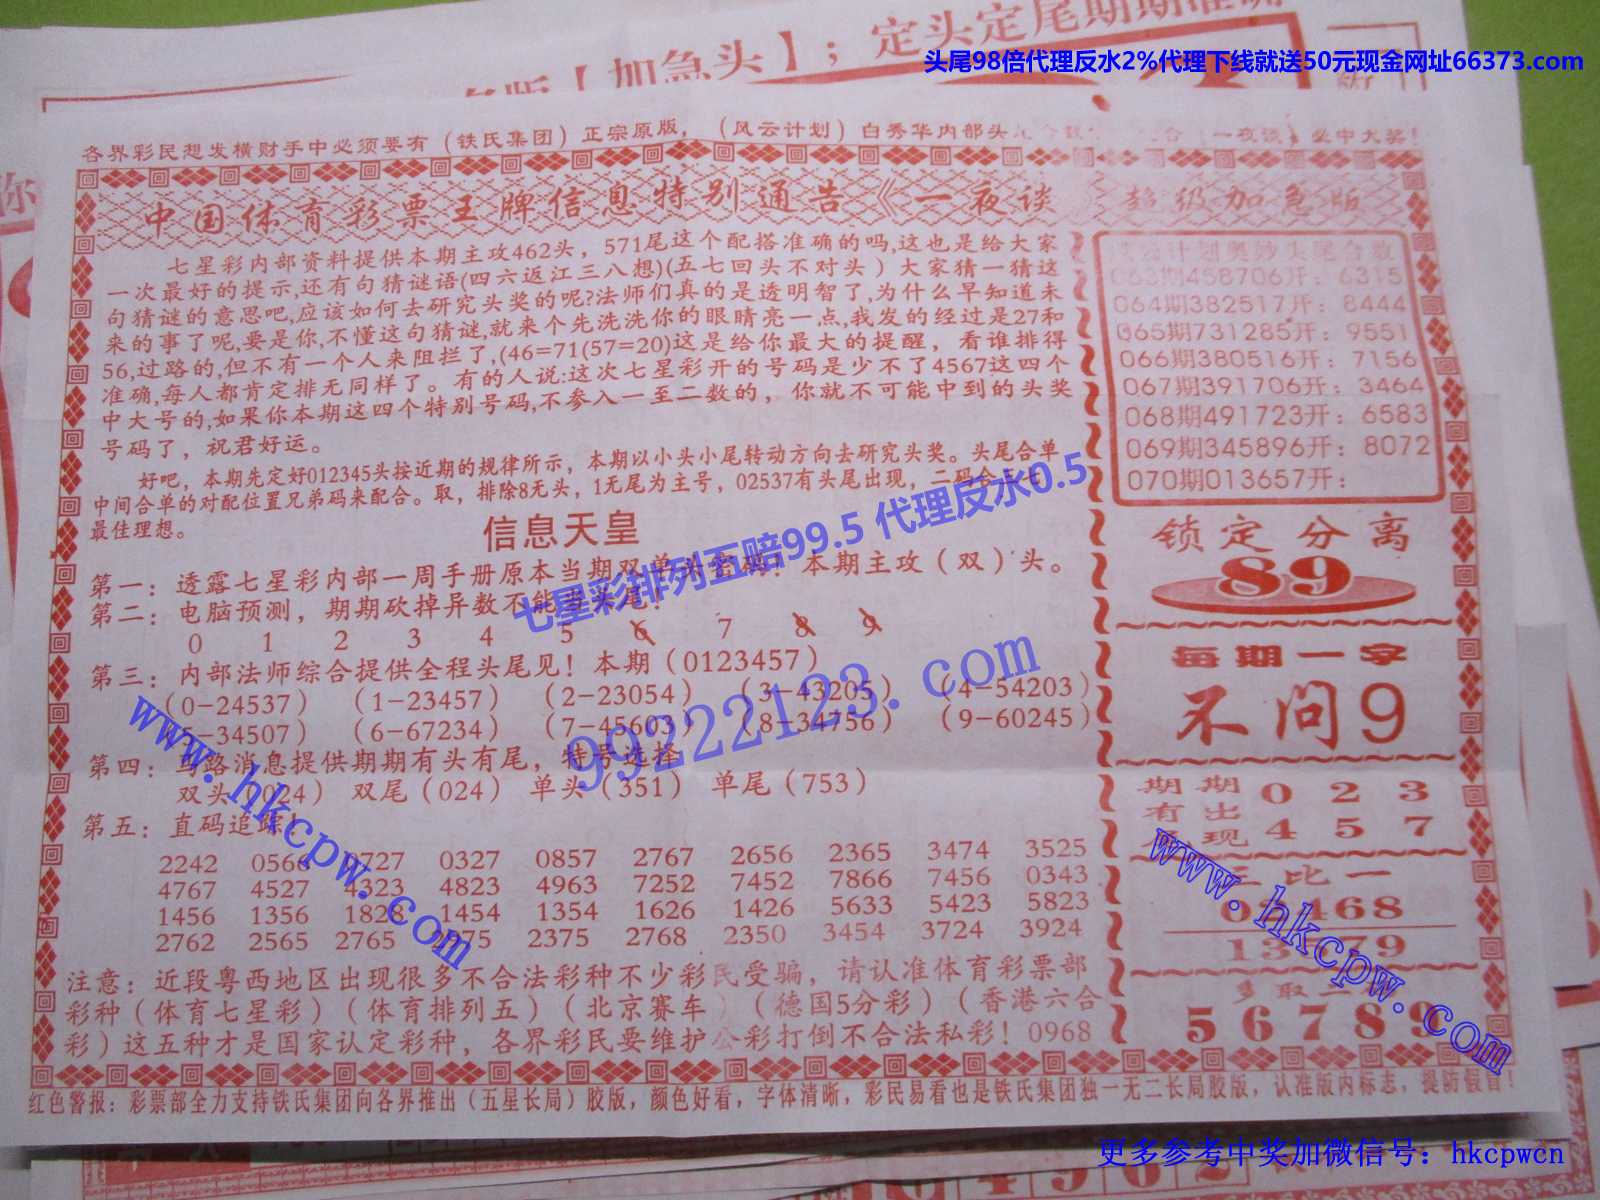 定头定尾期期准确
版【加急头】；
头尾98倍代理反水2%代理下线就送50元现金网址66373.com
各界彩民想发横财手中必须要有（铁氏集团）正宗原版，（风云计划）白秀华内部头 一夜谈，必中大奖！
中国体育彩票王牌信息特别通告《一夜谈 超级加急版
七星彩内部资料提供本期主攻462头，571尾这个配搭准确的吗,这也是给大家
一次最好的提示,还有句猜谜语(四六返江三八想)(五七回头不对头）大家猜一猜这
句猜谜的意思吧,应该如何去研究头奖的呢?法师们真的是透明智了,为什么早知道未
来的事了呢,要是你,不懂这句猜谜,就来个先洗洗你的眼睛亮一点,我发的经过是27和
56,过路的,但不有一个人来阻拦了,(46=71(57=20)这是给你最大的提醒，看谁排得
准确,每人都肯定排无同样了。有的人说:这次七星彩开的号码是少不了4567这四个
中大号的,如果你本期这四个特别号码,不参入一至二数的，你就不可能中到的头奖
号码了，祝君好运。
好吧，本期先定好012345头按近期的规律所示，本期以小头小尾转动方向去研究头奖。头尾合单
中间合单的对配位置兄弟码来配合。取，排除8无头，1无尾为主号，02537有头尾出现，二码合三七
最佳理想。
信息天皇
第一：透露七星彩内部一周手册原本当期双单头密码！本期主攻（双）头。
第二：电脑预测，期期砍掉异数不能当头尾！
0 1 2 3 4 5 6 7 8 9
第三：内部法师综合提供全程头尾见！本期（0123457）
（0-24537）（1-23457）（2-23054）（3-43205）（4-54203）
-34507）（6-67234）（7-45603）（8-34756）（9-60245）
第四：马路消息提供期期有头有尾，特号选择
双头（024）双尾（024）单头（351）单尾（753）
第五：直码追踪！
2242 0566 727 0327 0857 2767 2656 2365 3474 3525
4767 4527 4323 4823 4963 7252 7452 7866 7456 0343
1456 1356 1828 1454 1354 1626 1426 5633 5423 5823
2762 2565 2765 75 2375 2768 2350 3454 3724 3924
注意：近段粤西地区出现很多不合法彩种不少彩民受骗，请认准体育彩票部
彩种（体育七星彩）（体育排列五）（北京赛车）（德国5分彩）（香港六合
彩）这五种才是国家认定彩种，各界彩民要维护公彩打倒不合法私彩！0968
风云计划奥妙头尾合数
063期458706开：6315
064期382517开：8444
065期731285开：9551
066期380516开：7156
067期391706开：3464
068期491723开：6583
069期345896开：8072
070期013657开：
锁定分离
89
每期一字
不问9
期期 0 2 3
有出
现 4 5 7
三比一
468
13 79
多取一
56789
红色警报：彩票部全力支持铁氏集团向各界推出（五星长局）胶版，颜色好看，字体清晰，彩民易看也是铁氏集团独一无二长局胶版，认准版内标志，提防假冒！
七星彩排列五赔99.5 代理反水0.5
99222123.com
www.hkcpw.com
www.hkcpw.com
更多参考中奖加微信号：hkcpwcn